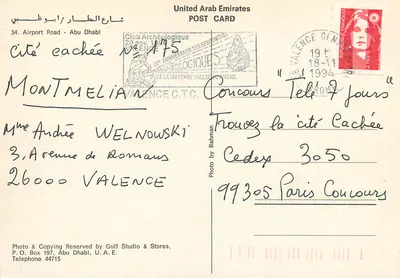 شارع المطار - ابو ظبي
34. Airport Road - Abu Dhabi
United Arab Emirates
POST CARD
Cité cachée N° 175
MONTMELIAN
Mme Andrée WELNOWSKI
3, Avenue de Romans
26000 VALENCE
Club Archéologique
VALENCE C.T.C.
VALENCE
18-11
1994
Concours "Télé 7 jours"
Trouvez la cité Cachée
Cedex 3050
99305 Paris Concours
Photo by Bahman
Photo & Copying Reserved by Gulf Studio & Stores,
P. O. Box 197, Abu Dhabi, U. A. E.
Telephone 44715